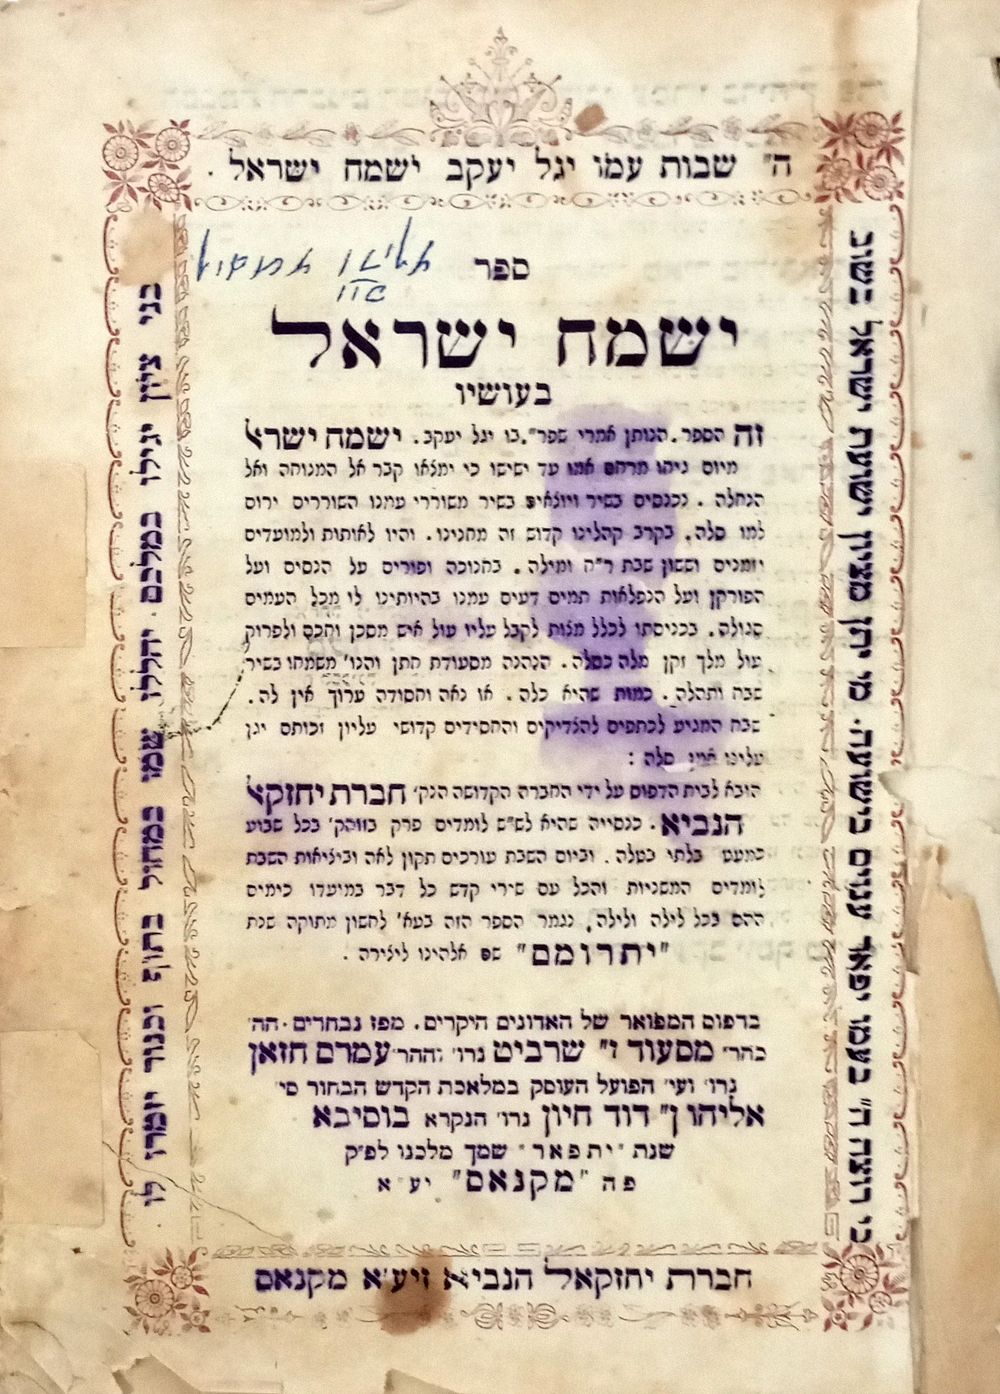 ה" שבות עמו יגל יעקב ישמח ישראל .
בני ציון יגילו במלכם . יהללו שמו במחול בתוף וכנור יזמרו לו
מי יתן מציון ישועת ישראל בשוב
כי רוצה ה" בעמו יפאר ענוים בישועה .
ספר
ישמח ישראל
בעושיו
זה הספר. הנותן אמרי שפר". בו יגל יעקב. ישמח ישראל
מיום גיחו מרחם אמו עד ישישו כי ימצאו קבר אל המנוחה ואל
הנחלה . נכנסים בשיר ויוצאים בשיר משוררי עמנו השוררים ירום
למו סלה. בקרב קהלינו קדוש זה מחנינו. והיו לאותות ולמועדים
וזמנים וששון שבת ר"ח ומילה. בחנוכה ופורים על הנסים ועל
הפורקן ועל הנפלאות תמים דעים עמנו בהיותינו לו מכל העמים
סגולה. בכניסתו לכלל מצות לקבל עליו עול איש מסכן וחכם ולפרוק
עול מלך זקן מלה כסלה. הנהנה מסעודת חתן והגו' משמחו בשיר
שבח ותהלה. כמות שהיא כלה. או נאה וחסודה ערוך אין לה.
שבח המגיע לכתפים להצדיקים והחסידים קדושי עליון זכותם יגן
עלינו אמן סלה :
הובא לבית הדפוס על ידי החברה הקדושה הנק' חברת יחזקאל
הנביא. כנסייה שהיא לש"ש לומדים פרק בזוהק' בכל שבוע
כמעט בלתי בטלה. וביום השבת עורכים תקון לאה וביציאות השבת
לומדים המשניות והכל עם שירי קדש כל דבר במועדו כימים
ההם בכל לילה ולילה. נגמר הספר הזה בעא' לחשון מתוקה שנת
"יתרומם" שם אלהינו ליצירה .
בדפוס המפואר של האדונים היקרים. מפז נבחרים. הה'
כהר' מסעוד ז" שרביט נרו' וההר' עמרם חזאן
נרו' ועי' הפועל העוסק במלאכת הקדש הבחור סי'
אליהו ן" דוד חיון נרו' הנקרא בוסיבא
שנת "יתפאר" שמך מלכנו לפ"ק
פה "מקנאם" יע"א
חברת יחזקאל הנביא זיע'א מקנאם